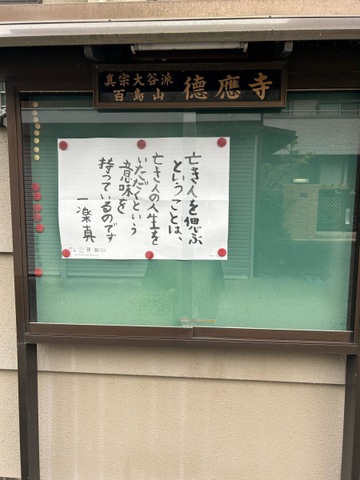 真宗大谷派
百島山
德應寺
亡き人を偲ぶ
ということは、
亡き人の人生を
いただくという
意味を
持っているのです
一楽真